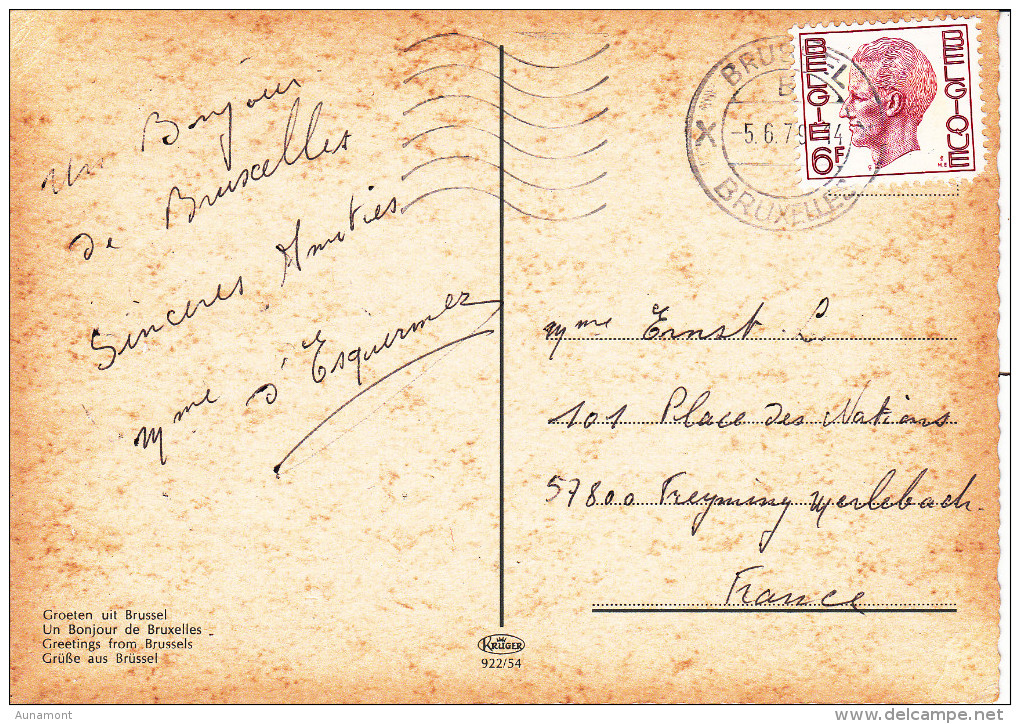 Un Bonjour
de Bruxelles
Sincères Amitiés
Mme d'Esquermez
Groeten uit Brussel
Un Bonjour de Bruxelles
Greetings from Brussels
Grüße aus Brüssel
KRÜGER
922/54
BRUSSEL
X
-5.6.79
14
BRUXELLES
BELGIE
BELGIQUE
6F
Mme Ernst L.
101 Place des Nations
57800 Freyming Merlebach.
France
Aunamont
delcampe.net